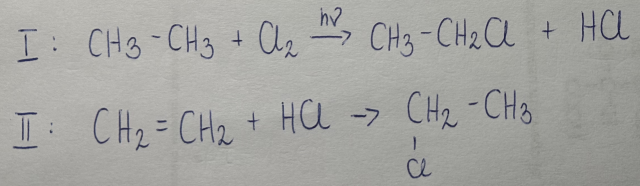 I : CH3 - CH3 + Cl2 hν→ CH3 - CH2Cl + HCl
II : CH2 = CH2 + HCl → CH2 - CH3
Cl